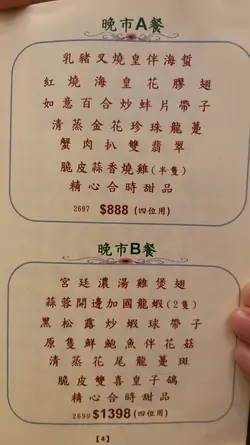 晚市A餐
乳豬叉燒皇伴海蜇
紅燒海皇花膠翅
如意百合炒蚌片帶子
清蒸金花珍珠龍躉
蟹肉扒雙翡翠
脆皮蒜香燒雞(半隻)
精心合時甜品
2697 $888 (四位用)
晚市B餐
宮廷濃湯雞煲翅
蒜蓉開邊加國龍蝦(2隻)
黑松露炒蝦球帶子
原隻鮮鮑魚伴花菇
清蒸花尾龍躉斑
脆皮雙喜皇子鴿
精心合時甜品
2699 $1398 (四位用)
【4】